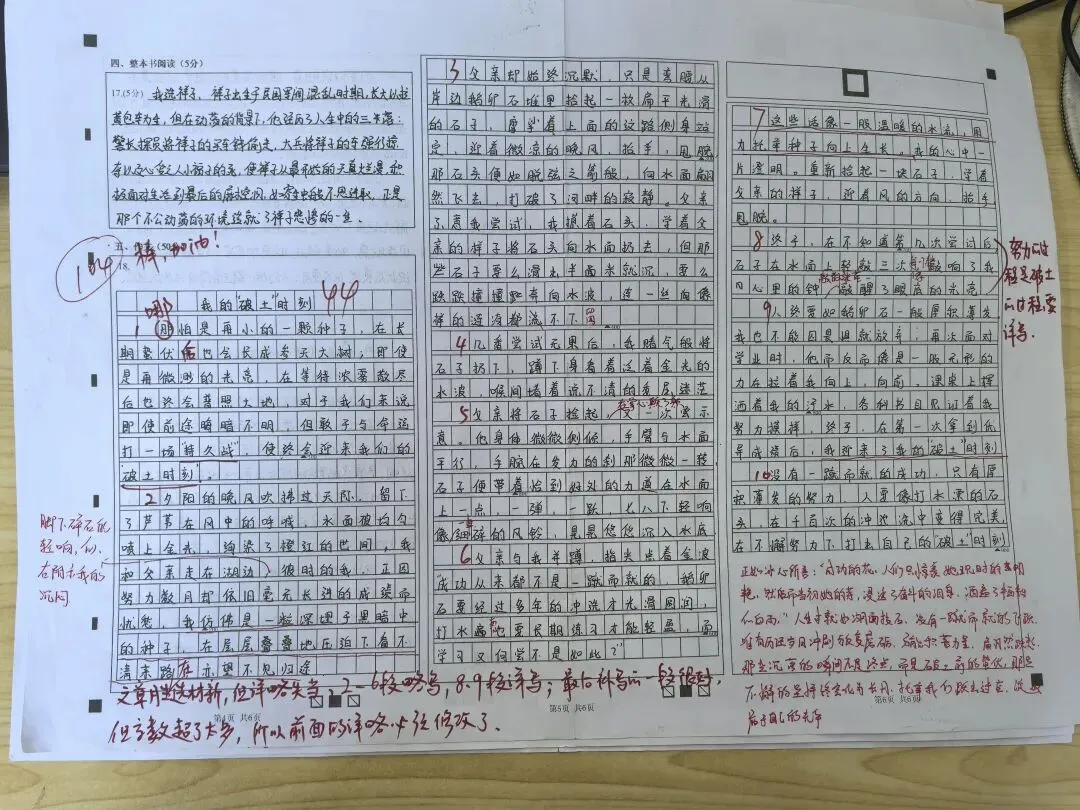 四、整本书阅读（5分）
17.(5分) 我选祥子，祥子出生于民国军阀混乱时期，长大以拉
黄包车为生，但在动荡的背景下，他经历了人生中的三
警长探员将祥子的买车钱偷走，大兵将祥子的车强行掠
夺以及心爱之人小福子的死，使祥子从最初的天真烂漫，积
极面对生活到最后的
那个不公动荡的环境造就了祥子悲惨的一生.
五、作文（50
棒，加油！
104
18.
44
哪
我的“破土”时刻
1 那怕是再小的一颗种子，在长
期蛰伏后也会长成参天大树；即使
是再微渺的光亮，在等待浓雾散尽
后也终会普照大地，对于我们来说
即使前途暗暗不明，但敢于与命运
打一场“持久战”，便终会迎来我们的
“破土时刻”。
2 夕阳的晚风吹拂过天际，留下
了芦苇在风中的呼喊，水面被均匀
喷上金光，渲染了橙红的世间。我
和父亲走在湖边，彼时的我，正因
努力数月却依旧毫无长进的成绩而
忧愁，我仿佛是一粒深埋于黑暗中
的种子，在层层叠叠地压迫下看不
清来路，亦望不见归途
脚下碎石的
轻响，似
在附和我的
沉闷
第4页 共6页
3 父亲却始终沉默，只是弯腰从
岸边鹅卵石堆里拾起一枚扁平光滑
的石子，摩挲着上面的纹路侧身站
定，迎着微凉的晚风，抬手，甩腕
那石头便如脱弦之箭般，向水面翩
然飞去，打破了河畔的寂静。父亲
示意我尝试，我握着石头，学着父
亲的样子将石头向水面扔去，但那
些石子要么滑出半面来就沉，要么
跌跌撞撞地奔向水波，连一丝向像
样的涟漪都流不下
4 几番尝试无果后，我赌气般将
石子扔下，蹲下身看着泛着金光的
水波，喉间堵着说不清的委屈迷茫
5 父亲将石子捡起，又一次示
意。他身体微微侧倾，手臂与水面
平行，手腕在发力的刹那微微一转
石子便带着恰到好处的力道在水面
上一点，一弹，一跃，七八下轻响
像细碎的风铃，晃晃悠悠沉入水底
6 父亲与我并蹲，指尖点着金波
成功从来都不是一蹴而就的，鹅卵
石要经过多年的冲洗才光滑圆润，
打水漂也要长期练习才能轻盈，而
学习又何尝不是如此？
第5页 共6页
7 这些话像一股温暖的水流，用
力托举种子向上生长，我的心中一
片澄明。重新拾起一块石子，学着
父亲的样子，迎着风的方向，抬手
甩腕。
8 终于，在不知道第几次尝试后
石子在水面上轻敲三次，敲响了我
内心里的钟，敲醒了眼底的光亮
9 人终要如鹅卵石一般厚积薄发
我也不能因是退就放弃，再次面对
学业时，他而反而像是一股无形的
力在拉着我向上，向前，课桌上挥
洒着我的汗水，各科书目见证着我
努力模样，终于，在第一次拿到优
异成绩后，我迎来了我的“破土”时刻
10 没有一蹴而就的成功，只有厚
积薄发的努力，人要像打水漂的石
头，在千百次的冲洗沉中变得完美，
在不懈努力下打出自己的“破土”时刻
努力的过
程是破土
的过程，要
详写.
正如冰心所言：“成功的花，人们只惊羡她现时的明
艳，然而当初她的芽，浸透了奋斗的泪泉，洒遍了牺牲
的血雨。”人生
第6页 共6页
文章用选材新，但详略失当，2－6段略写，8、9段详写；最后补写的一段很好，
但字数超了太多，所以前面的详略必须修改了.